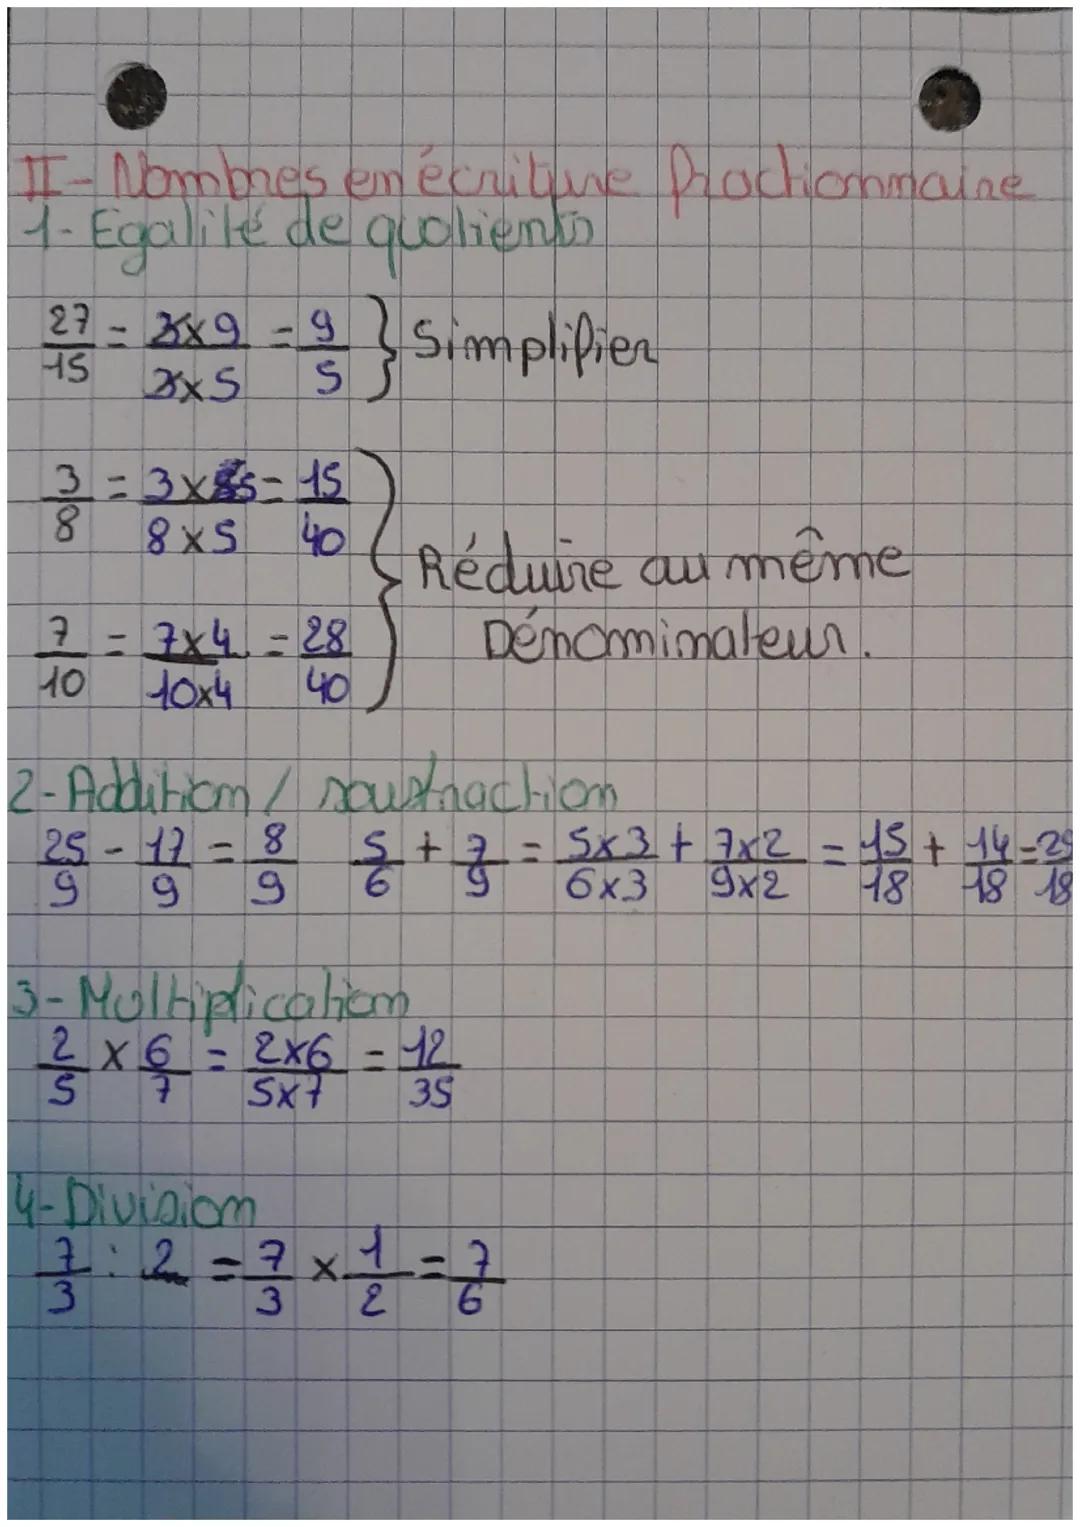 II - Nombres en écriture fractionnaire
1 - Egalité de quotients
27/15 = 3x9/3x5 = 9/5 } Simplifier
3/8 = 3x5/8x5 = 15/40
7/10 = 7x4/10x4 = 28/40
} Réduire au même
Dénominateur.
2 - Addition / soustraction
25/9 - 17/9 = 8/9 5/6 + 7/9 = 5x3/6x3 + 7x2/9x2 = 15/18 + 14/18 = 29/18
3 - Multiplication
2/5 x 6/7 = 2x6/5x7 = 12/35
4 - Division
7/3 : 2 = 7/3 x 1/2 = 7/6